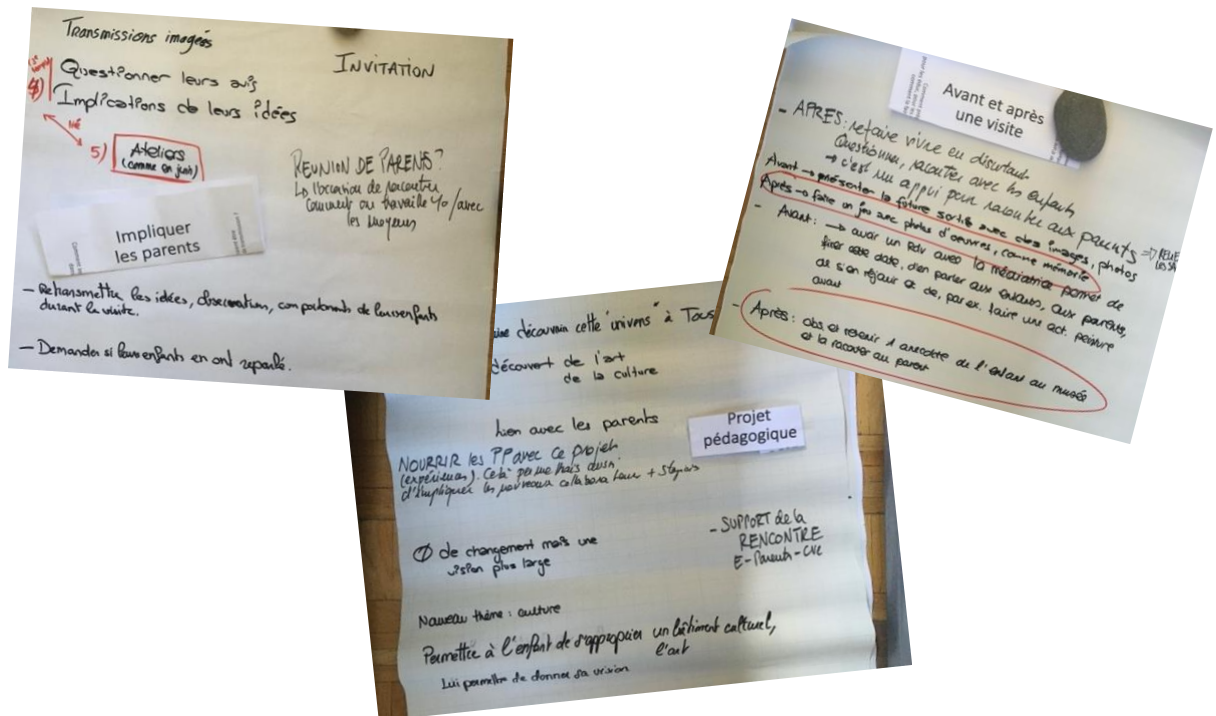 Transmissions imagées
Questionner leurs avis
Implications de leurs idées
lié
5) Ateliers
(comme en juin)
INVITATION
REUNION DE PARENTS?
L'occasion de raconter
comment on travaille avec
les moyens
Impliquer
les parents
- Retransmettre les idées, observation, comportements de leurs enfants
durant la visite.
- Demander si leurs enfants en ont reparlé.
Avant et après
une visite
- APRES: refaire vivre en discutant
Questionner, raconter avec les enfants
→ c'est un appui pour raconter aux parents
Avant → présenter la future sortie avec des images, photos
Après → faire un jeu avec photos d'oeuvres, comme mémorie
- Avant: → avoir un rdv avec la médiatrice permet de
fixer cette date, d'en parler aux enfants, aux parents,
de s'en réjouir et de, par ex. faire une act. peinture
avant
- Après: obs. et retenir 1 anecdote de l'enfant au musée
et la raconter au parent
découvrir cette "univers" à Tous
découvert de l'art
de la culture
Lien avec les parents
Projet
pédagogique
NOURRIR les PP avec ce projet
(expériences). Cela permettrais aussi
d'impliquer les nouveaux collaborateurs + Stagiaires
- SUPPORT de la
RENCONTRE
E-Parents-CVE
∅ de changement mais une
vision plus large
Nouveau thème: culture
Permettre à l'enfant de s'approprier un bâtiment culturel,
l'art
Lui permettre de donner sa vision